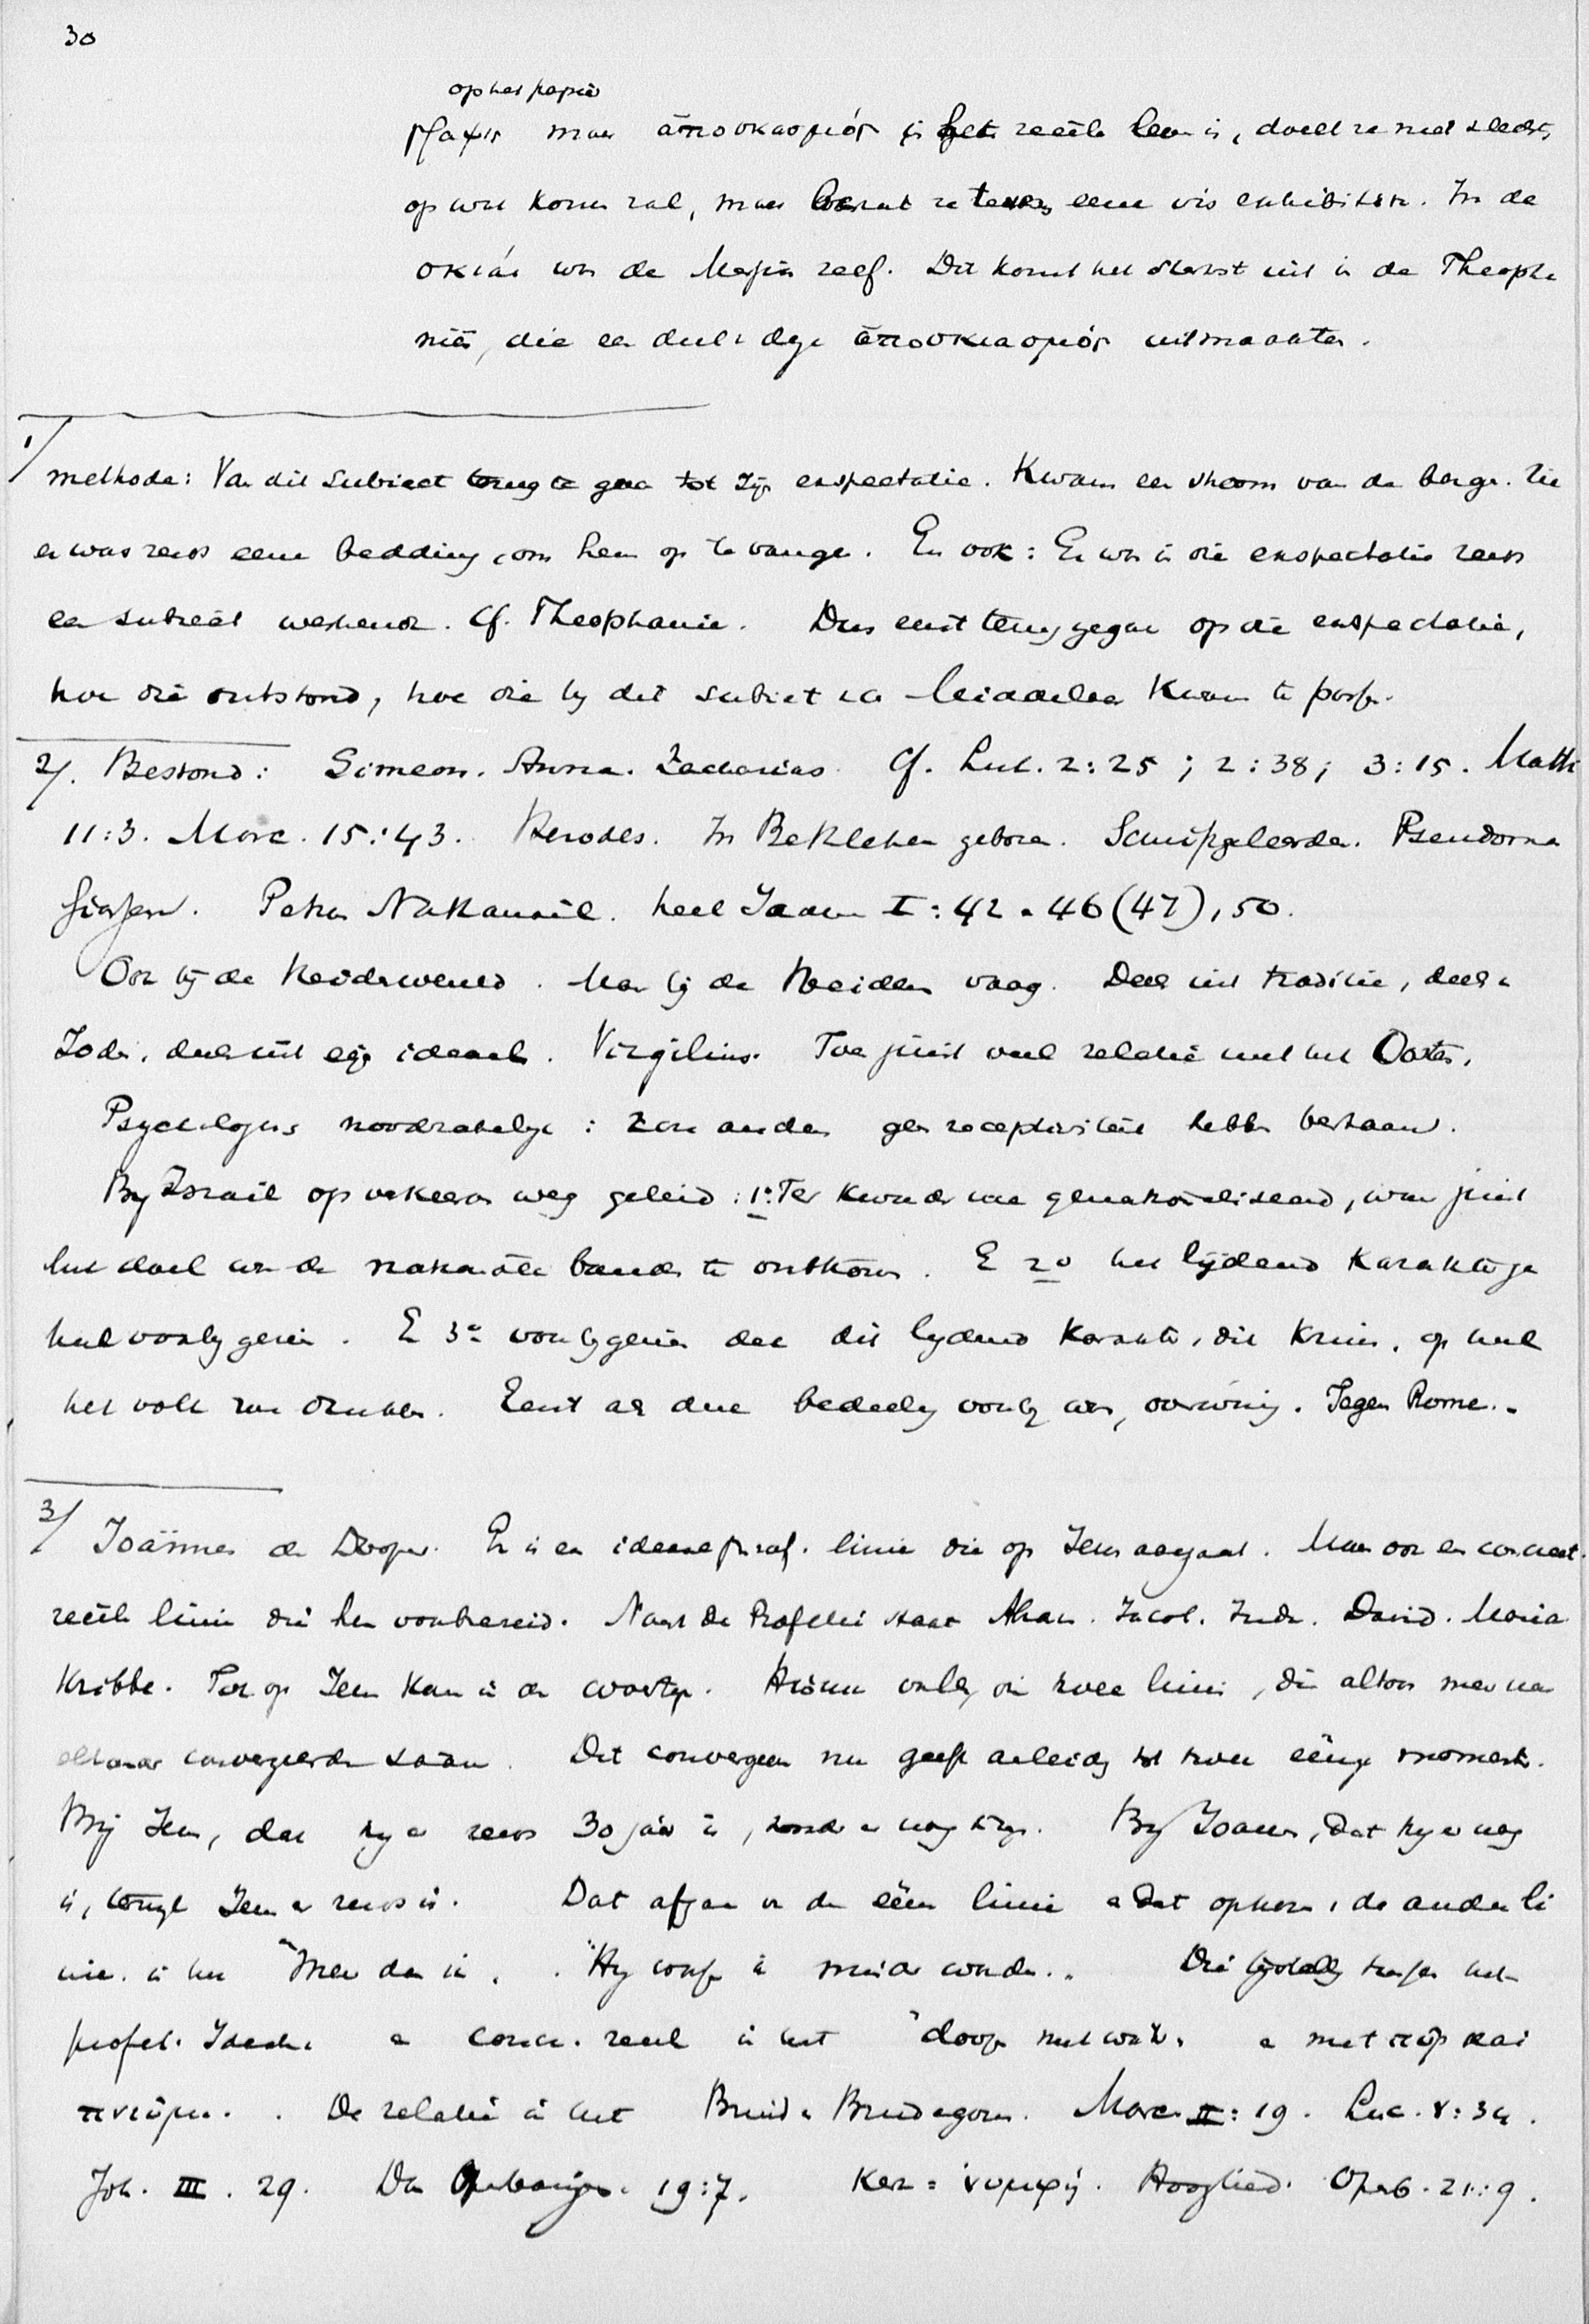 30
op het papier
maar ἀποσκιασμός in het reëele leven is, doelt ze niet slechts
op wat komen zal, maar bevat ze tevens eene vis exhibitiva. In de
σκιάι was de Messias zelf. Dit komt het sterkst uit in de Theopha
nië, die een duidelijke ἀποσκιασμός uitmaakten.
1/
methode: Van dit subiect terug te gaan tot zijn expectatie. Kwam een stroom van de bergen. Zie
er was reeds eene bedding, om hem op te vangen. En ook: Er was in die expectatie reeds
een subiect werkend. Cf. Theophanie. Dus eerst teruggegaan op die expectatie,
hoe die ontstond, hoe die by dit subiect en Middelaar kwam te passen.
2/. Bestond: Simeon. Anna. Zacharias. Cf. Luc. 2:25; 2:38; 3:15. Matth
11:3. Marc. 15:43. Herodes. In Bethlehem geboren. Schriftgeleerden. Pseudomes
siassen. Petrus Nathanaël. heel Joden I:42. 46(47), 50.
Ook bij de Heidenwereld. Maar bij de Heidenen vaag. Deels uit traditie, deels
Joden, deels uit eigen ideaal. Virgilius. Toen juist veel relatie met het Oosten.
Psychologisch noodzakelyk: zou anders geen receptiviteit hebben bestaan.
By Israël op verkeerden weg geleid: 1° Ten kwade was genationaliseerd, waar juist
het doel was de nationale banden te ontkomen. En 2° het lijdend karakter ja
heel voorbygezien. En 3° voorbygezien dat dit lydend karakter, dit kruis, op heel
het volk zou drukken. Eerst als deze bedeeling voorby was, overwinning. Tegen Rome.
3/ Joännes de Dooper. Er is een ideaal profet. linie die op Jezus aangaat. Maar ook een concreet
reëele linie die hem voorbereid. Naast de Profetie staat Abrah. Jacob. Juda. David. Maria
Kribbe. Tot op Jezus kwam in de woestyn. Hierin vallen die twee linies, die altoos meer naar
elkaar convergeerden saam. Dit convergeeren nu geeft aanleiding tot twee eenige momenten.
Bij Jezus, dat hy er reeds 30 jaar is, zonder er nog te zyn. By Joannes, dat hy er nog
is, terwyl Jezus er reeds is. Dat afgaan van de ééne linie en dat opkomen van de andere li
nie. is het "Meer dan ik. "Hy wassen ik minder worden." Die tijdelyk tusschen het
profet. Ideeele en concr. reeel is het "doopen met water en met πῦρ καὶ
πνεῦμα. De relatie is het Bruid en Bruidegom. Marc. II:19. Luc. V:34.
Joh. III. 29. Dan Openbaring. 19:7. Kerk = νυμφή. Hooglied. Openb. 21:9.